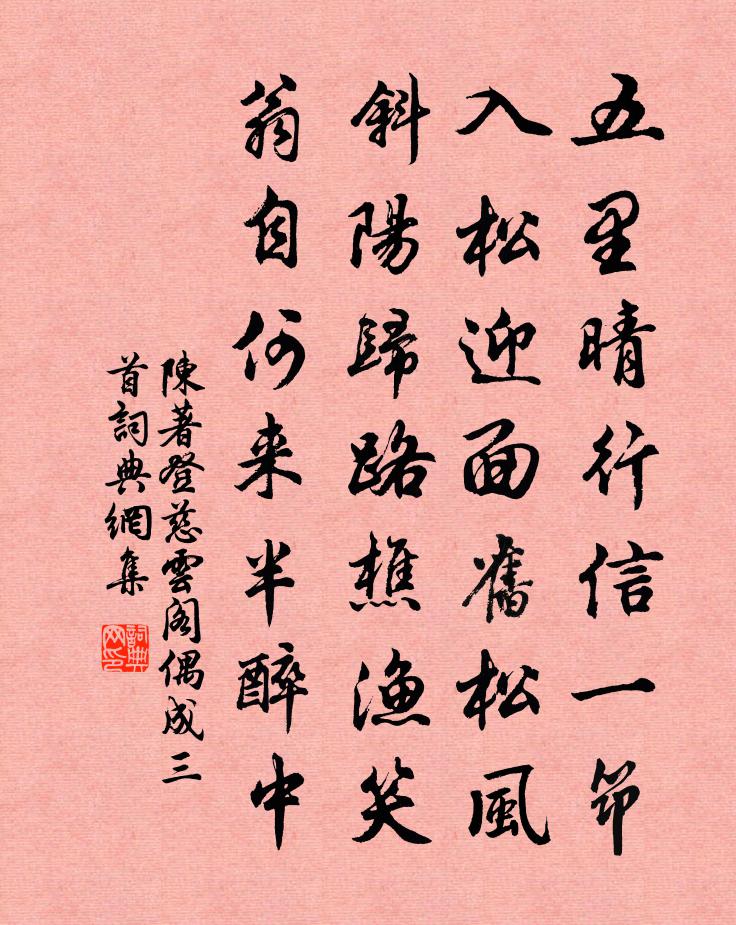 五里晴行信一筇
入松迎面舊松風
斜陽歸路樵漁笑
翁自何来半醉中
陳著登慈雲閣偶成三
首詞典網集
詞典网印